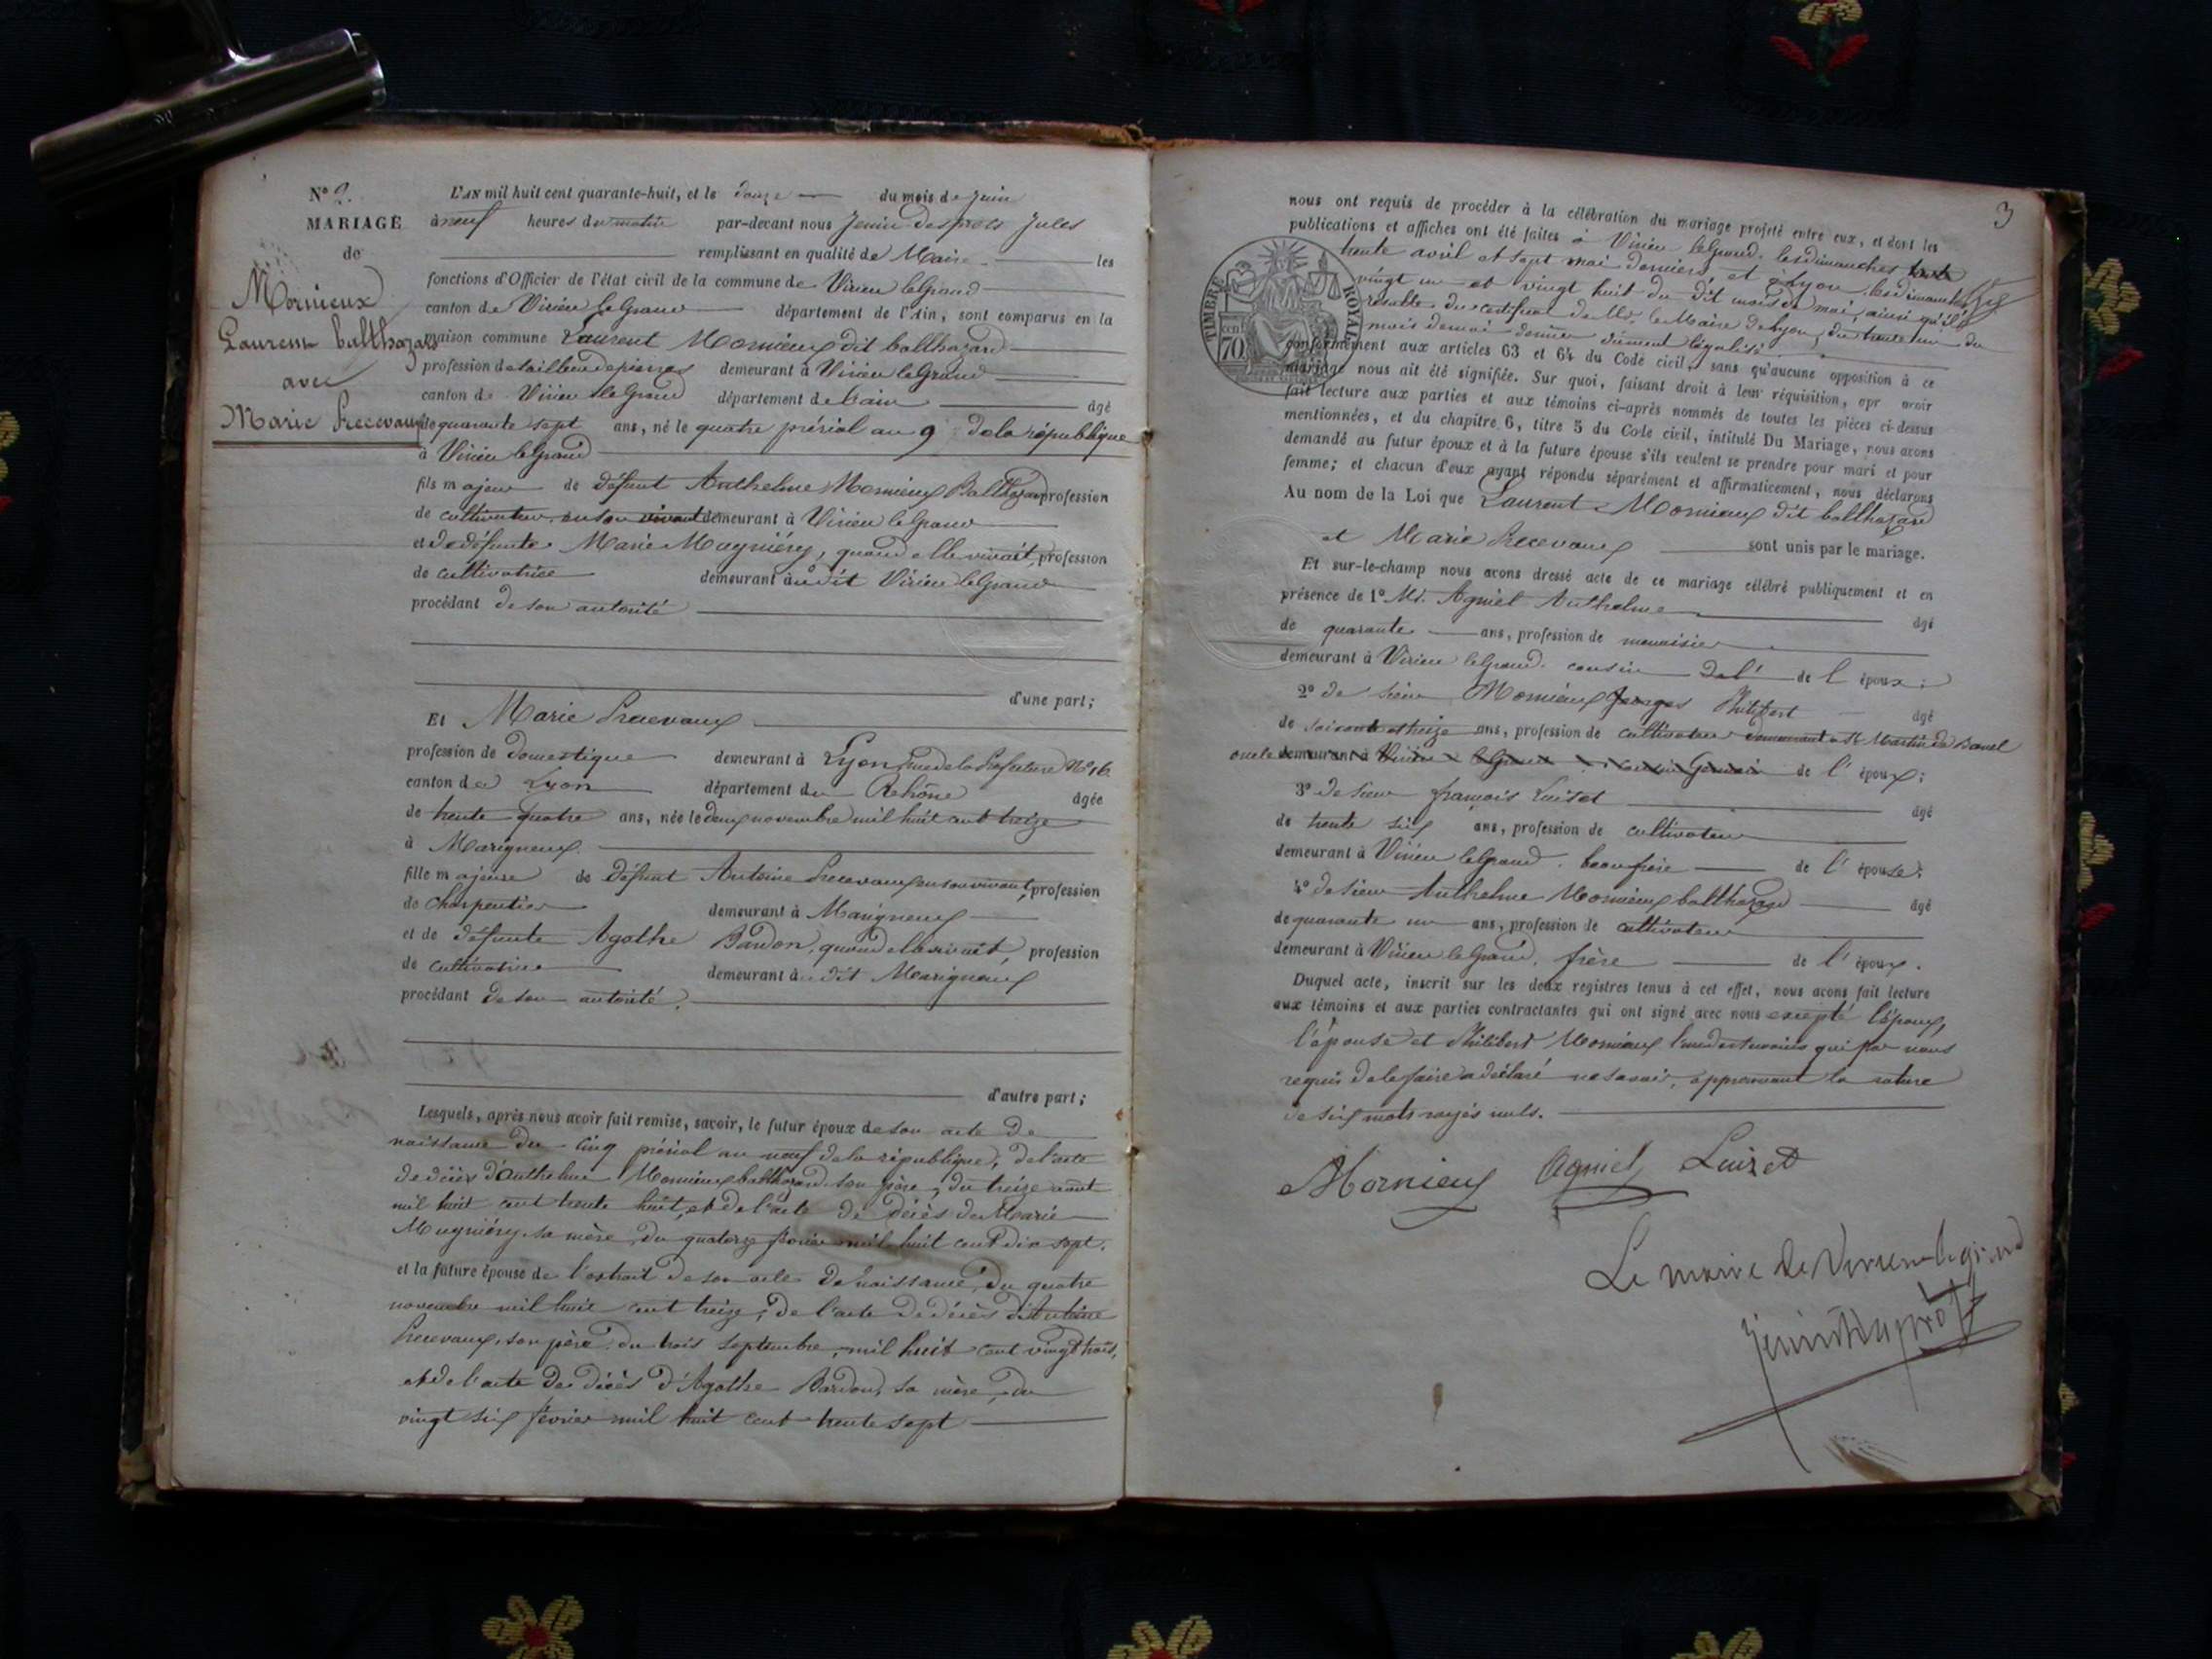 N° 2.
MARIAGE
de
Mornieux
Laurent balthazard
avec
Marie Precevaux
L'AN mil huit cent quarante-huit, et le douze du mois de Juin
à neuf heures du matin par-devant nous Jenin Desprots Jules
remplissant en qualité de Maire les
fonctions d'Officier de l'état civil de la commune de Virieu le Grand
canton de Virieu le Grand département de l'Ain, sont comparus en la
maison commune Laurent Mornieux dit balthazard
profession de tailleur de pierres demeurant à Virieu le Grand
canton de Virieu le Grand département de l'ain âgé
de quarante sept ans, né le quatre prérial an 9 de la république
à Virieu le Grand
fils majeur de défunt Anthelme Mornieux Balthazard profession
de cultivateur, en son vivant demeurant à Virieu le Grand
et de défunte Marie Mugniéry, quand elle vivait, profession
de cultivatrice demeurant au dit Virieu le Grand
procédant de son autorité
d'une part;
Et Marie Precevaux
profession de domestique demeurant à Lyon, rue de la Préfecture N° 16
canton de Lyon département du Rhône âgée
de trente quatre ans, née le deux novembre mil huit cent treize
à Marigneux.
fille majeure de défunt Antoine Precevaux en son vivant, profession
de charpentier demeurant à Marigneux
et de défunte Agathe Bardon, quand elle vivait, profession
de cultivatrice demeurant au dit Marigneux
procédant de son autorité.
d'autre part;
Lesquels, après nous avoir fait remise, savoir, le futur époux de son acte de
naissance du cinq prérial an neuf de la république, de l'acte
de décès d'Anthelme Mornieux balthazard son père, du treize août
mil huit cent trente huit, et de l'acte de décès de Marie
Mugniéry, sa mère, du quatorze février mil huit cent dix sept.
et la future épouse de l'extrait de son acte de naissance, du quatre
novembre mil huit cent treize, de l'acte de décès d'Antoine
Precevaux, son père, du trois septembre, mil huit cent vingt trois,
et de l'acte de décès d'Agathe Bardon, sa mère, du
vingt six février mil huit cent trente sept
3
nous ont requis de procéder à la célébration du mariage projeté entre eux, et dont les
publications et affiches ont été faites à Virieu le Grand, les dimanches
trente avril et sept mai derniers, et à Lyon, les dimanches
vingt un et vingt huit du dit mois de mai, ainsi qu'il
résulte du certificat de Mr. le Maire de Lyon, du trente un du
mois de mai dernier dûment légalisé.
TIMBRE ROYAL
cen 70
conformément aux articles 63 et 64 du Code civil, sans qu'aucune opposition à ce
mariage nous ait été signifiée. Sur quoi, faisant droit à leur réquisition, apr avoir
fait lecture aux parties et aux témoins ci-après nommés de toutes les pièces ci-dessus
mentionnées, et du chapitre 6, titre 5 du Code civil, intitulé Du Mariage, nous avons
demandé au futur époux et à la future épouse s'ils veulent se prendre pour mari et pour
femme; et chacun d'eux ayant répondu séparément et affirmativement, nous déclarons
Au nom de la Loi que Laurent Mornieux dit balthazard
et Marie Precevaux sont unis par le mariage.
Et sur-le-champ nous avons dressé acte de ce mariage célébré publiquement et en
présence de 1° Mr. Agniel Anthelme âgé
de quarante ans, profession de menuisier
demeurant à Virieu le Grand. cousin de l' de l époux;
2° de sieur Mornieux Philibert âgé
de soixante et treize ans, profession de cultivateur demeurant à St Martin de Bavel
oncle demeurant à Virieu le Grand cousin Germain de l' époux;
3° de sieur françois Luiset âgé
de trente six ans, profession de cultivateur
demeurant à Virieu le Grand. beau frère de l' épouse;
4° de sieur Anthelme Mornieux balthazard âgé
de quarante un ans, profession de cultivateur
demeurant à Virieu le Grand, frère de l' époux.
Duquel acte, inscrit sur les deux registres tenus à cet effet, nous avons fait lecture
aux témoins et aux parties contractantes qui ont signé avec nous excepté l'époux,
l'épouse et Philibert Mornieux l'un des témoins qui par nous
requis de le faire a déclaré ne savoir, approuvant la rature
de six mots rayés nuls.
Mornieux Agniel Luiset
Le maire de Virieu le grand